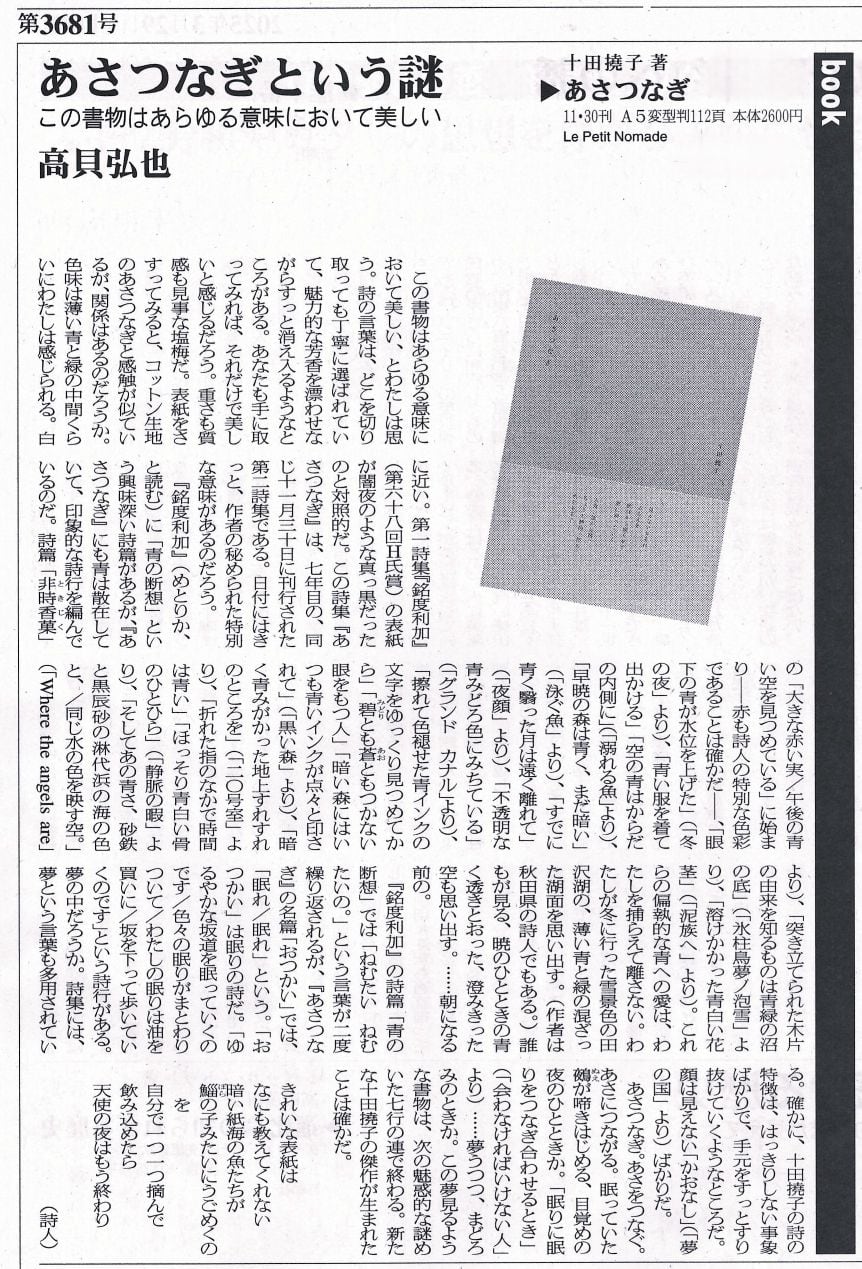 第3681号
book
十田撓子 著
▶あさつなぎ
11・30刊 A5変型判112頁 本体2600円
Le Petit Nomade
あさつなぎという謎
この書物はあらゆる意味において美しい
高貝弘也
この書物はあらゆる意味に
おいて美しい、とわたしは思
う。詩の言葉は、どこを切り
取っても丁寧に選ばれてい
て、魅力的な芳香を漂わせな
がらすっと消え入るようなと
ころがある。あなたも手に取
ってみれば、それだけで美し
いと感じるだろう。重さも質
感も見事な塩梅だ。表紙をさ
すってみると、コットン生地
のあさつなぎと感触が似てい
るが、関係はあるのだろうか。
色味は薄い青と緑の中間くら
いにわたしは感じられる。白
に近い。第一詩集『銘度利加』
(第六十八回H氏賞)の表紙
が闇夜のような真っ黒だった
のと対照的だ。この詩集『あ
さつなぎ』は、七年目の、同
じ十一月三十日に刊行された
第二詩集である。日付にはき
っと、作者の秘められた特別
な意味があるのだろう。
『銘度利加』(めとりか、
と読む)に「青の断想」とい
う興味深い詩篇があるが、『あ
さつなぎ』にも青は散在して
いて、印象的な詩行を編んで
いるのだ。詩篇「非時香菓」
ときじく
の「大きな赤い実／午後の青
い空を見つめている」に始ま
り――赤も詩人の特別な色彩
であることは確かだ――、「眼
下の青が水位を上げた」(「冬
の夜」より)、「青い服を着て
出かける」「空の青はからだ
の内側に」(「溺れる魚」より)、
「早暁の森は青く、まだ暗い」
(「泳ぐ魚」より)、「すでに
青く翳った月は遠く離れて」
(「夜顔」より)、「不透明な
青みどろ色にみちている」
(「グランド　カナル」より)、
「擦れて色褪せた青インクの
文字をゆっくり見つめてか
ら」「碧とも蒼ともつかない
みどり
あお
眼をもつ人」「暗い森にはい
つも青いインクが点々と印さ
れて」(「黒い森」より)、「暗
く青みがかった地上すれすれ
のところを」(「二〇号室」よ
り)、「折れた指のなかで時間
は青い」「ほっそり青白い骨
のひとひら」(「静脈の暇」よ
り)、「そしてあの青さ、砂鉄
と黒辰砂の淋代浜の海の色
と、／同じ水の色を映す空。」
(「Where the angels are」
より)、「突き立てられた木片
の由来を知るものは青緑の沼
の底」(「氷柱鳥夢ノ泡雪」よ
り)、「溶けかかった青白い花
茎」(「泥族へ」より)。これ
らの偏執的な青への愛は、わ
たしを捕らえて離さない。わ
たしが冬に行った雪景色の田
沢湖の、薄い青と緑の混ざっ
た湖面を思い出す。(作者は
秋田県の詩人でもある。)誰
もが見る、暁のひとときの青
く透きとおった、澄みきった
空も思い出す。……朝になる
前の。
『銘度利加』の詩篇「青の
断想」では「ねむたい　ねむ
たいの。」という言葉が二度
繰り返されるが、『あさつな
ぎ』の名篇「おつかい」では、
「眠れ／眠れ」という。「お
つかい」は眠りの詩だ。「ゆ
るやかな坂道を眠っていくの
です／色々の眠りがまとわり
ついて／わたしの眠りは油を
買いに／坂を下って歩いてい
くのです」という詩行がある。
夢の中だろうか。詩集には、
夢という言葉も多用されてい
る。確かに、十田撓子の詩の
特徴は、はっきりしない事象
ばかりで、手元をすっとすり
抜けていくようなところだ。
顔は見えない「かおなし」(「夢
の国」より)ばかりだ。
あさつなぎ。あさをつなぐ。
あさにつながる。眠っていた
鵺が啼きはじめる、目覚めの
ぬえ
夜のひとときか。「眠りに眠
りをつなぎ合わせるとき」
(「会わなければいけない人」
より)……夢うつつ、まどろ
みのときか。この夢見るよう
な書物は、次の魅惑的な謎め
いた七行の連で終わる。新た
な十田撓子の傑作が生まれた
ことは確かだ。
きれいな表紙は
なにも教えてくれない
暗い紙海の魚たちが
鯔の子みたいにうごめくの
を
自分で一つ一つ摘んで
飲み込めたら
天使の夜はもう終わり
(詩人)